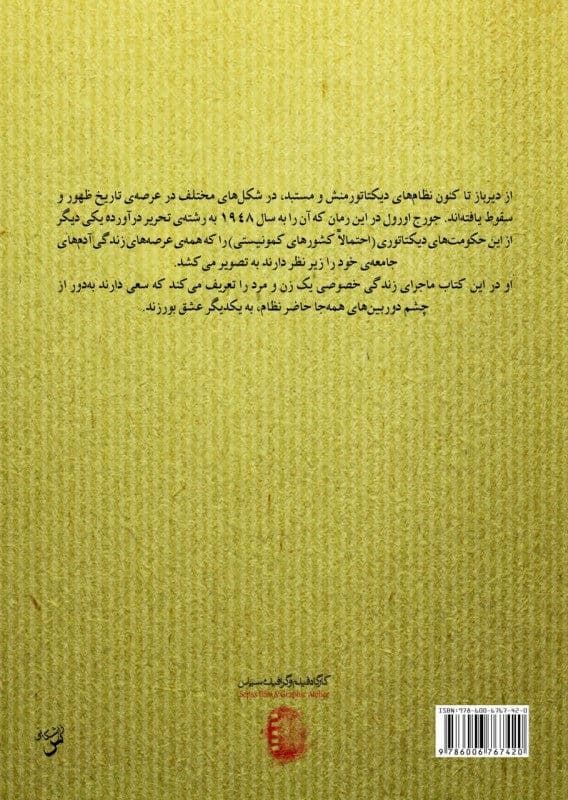 از دیرباز تا کنون نظام‌های دیکتاتورمنش و مستبد، در شکل‌های مختلف در عرصه‌ی تاریخ ظهور و
سقوط یافته‌اند. جورج اورول در این رمان که آن را به سال ۱۹۴۸ به رشته‌ی تحریر درآورده یکی دیگر
از این حکومت‌های دیکتاتوری (احتمالاً کشورهای کمونیستی) را که همه‌ی عرصه‌های زندگی آدم‌های
جامعه‌ی خود را زیر نظر دارند به تصویر می‌کشد.
او در این کتاب ماجرای زندگی خصوصی یک زن و مرد را تعریف می‌کند که سعی دارند به‌دور از
چشم دوربین‌های همه‌جا حاضر نظام، به یکدیگر عشق بورزند.
کارگاه فیلم و گرافیک سپاس
Sepas Film & Graphic Atelier
ISBN: 978-600-6767-42-0
9 786006 767420